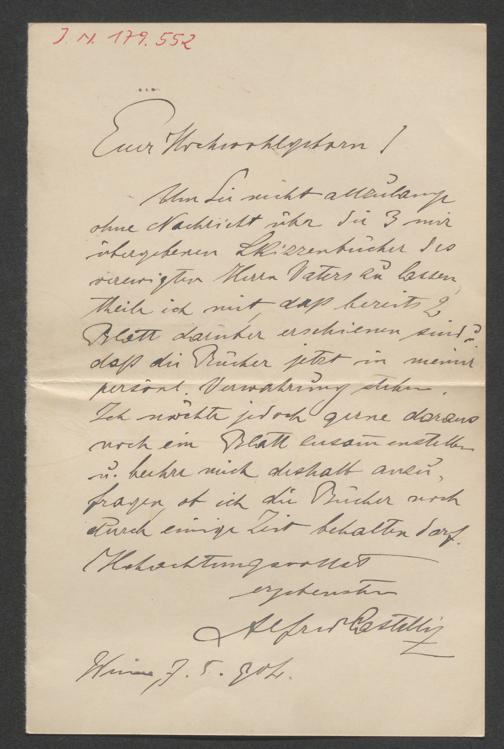 J. N. 179.552
Euer Hochwohlgeborn!
Um Sie nicht allzulange
ohne Nachricht über die 3 mir
übergebenen Skizzenbücher des
verewigten Herrn Vaters zu lassen,
theile ich mit, daß bereits 2
Blatt darüber erschienen sind u.
daß die Bücher jetzt in meiner
persönl. Verwahrung stehen.
Ich möchte jedoch gerne daraus
noch ein Blatt zusammenstellen
u. beehre mich deshalb anzu-
fragen, ob ich die Bücher noch
durch einige Zeit behalten darf.
Hochachtungsvollst
ergebenster
Alfred Castelliz
Wien, 7. 5. 904.